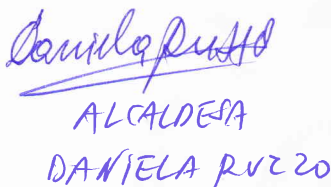 Daniela Russo
ALCALDESA
DANIELA RUZZO